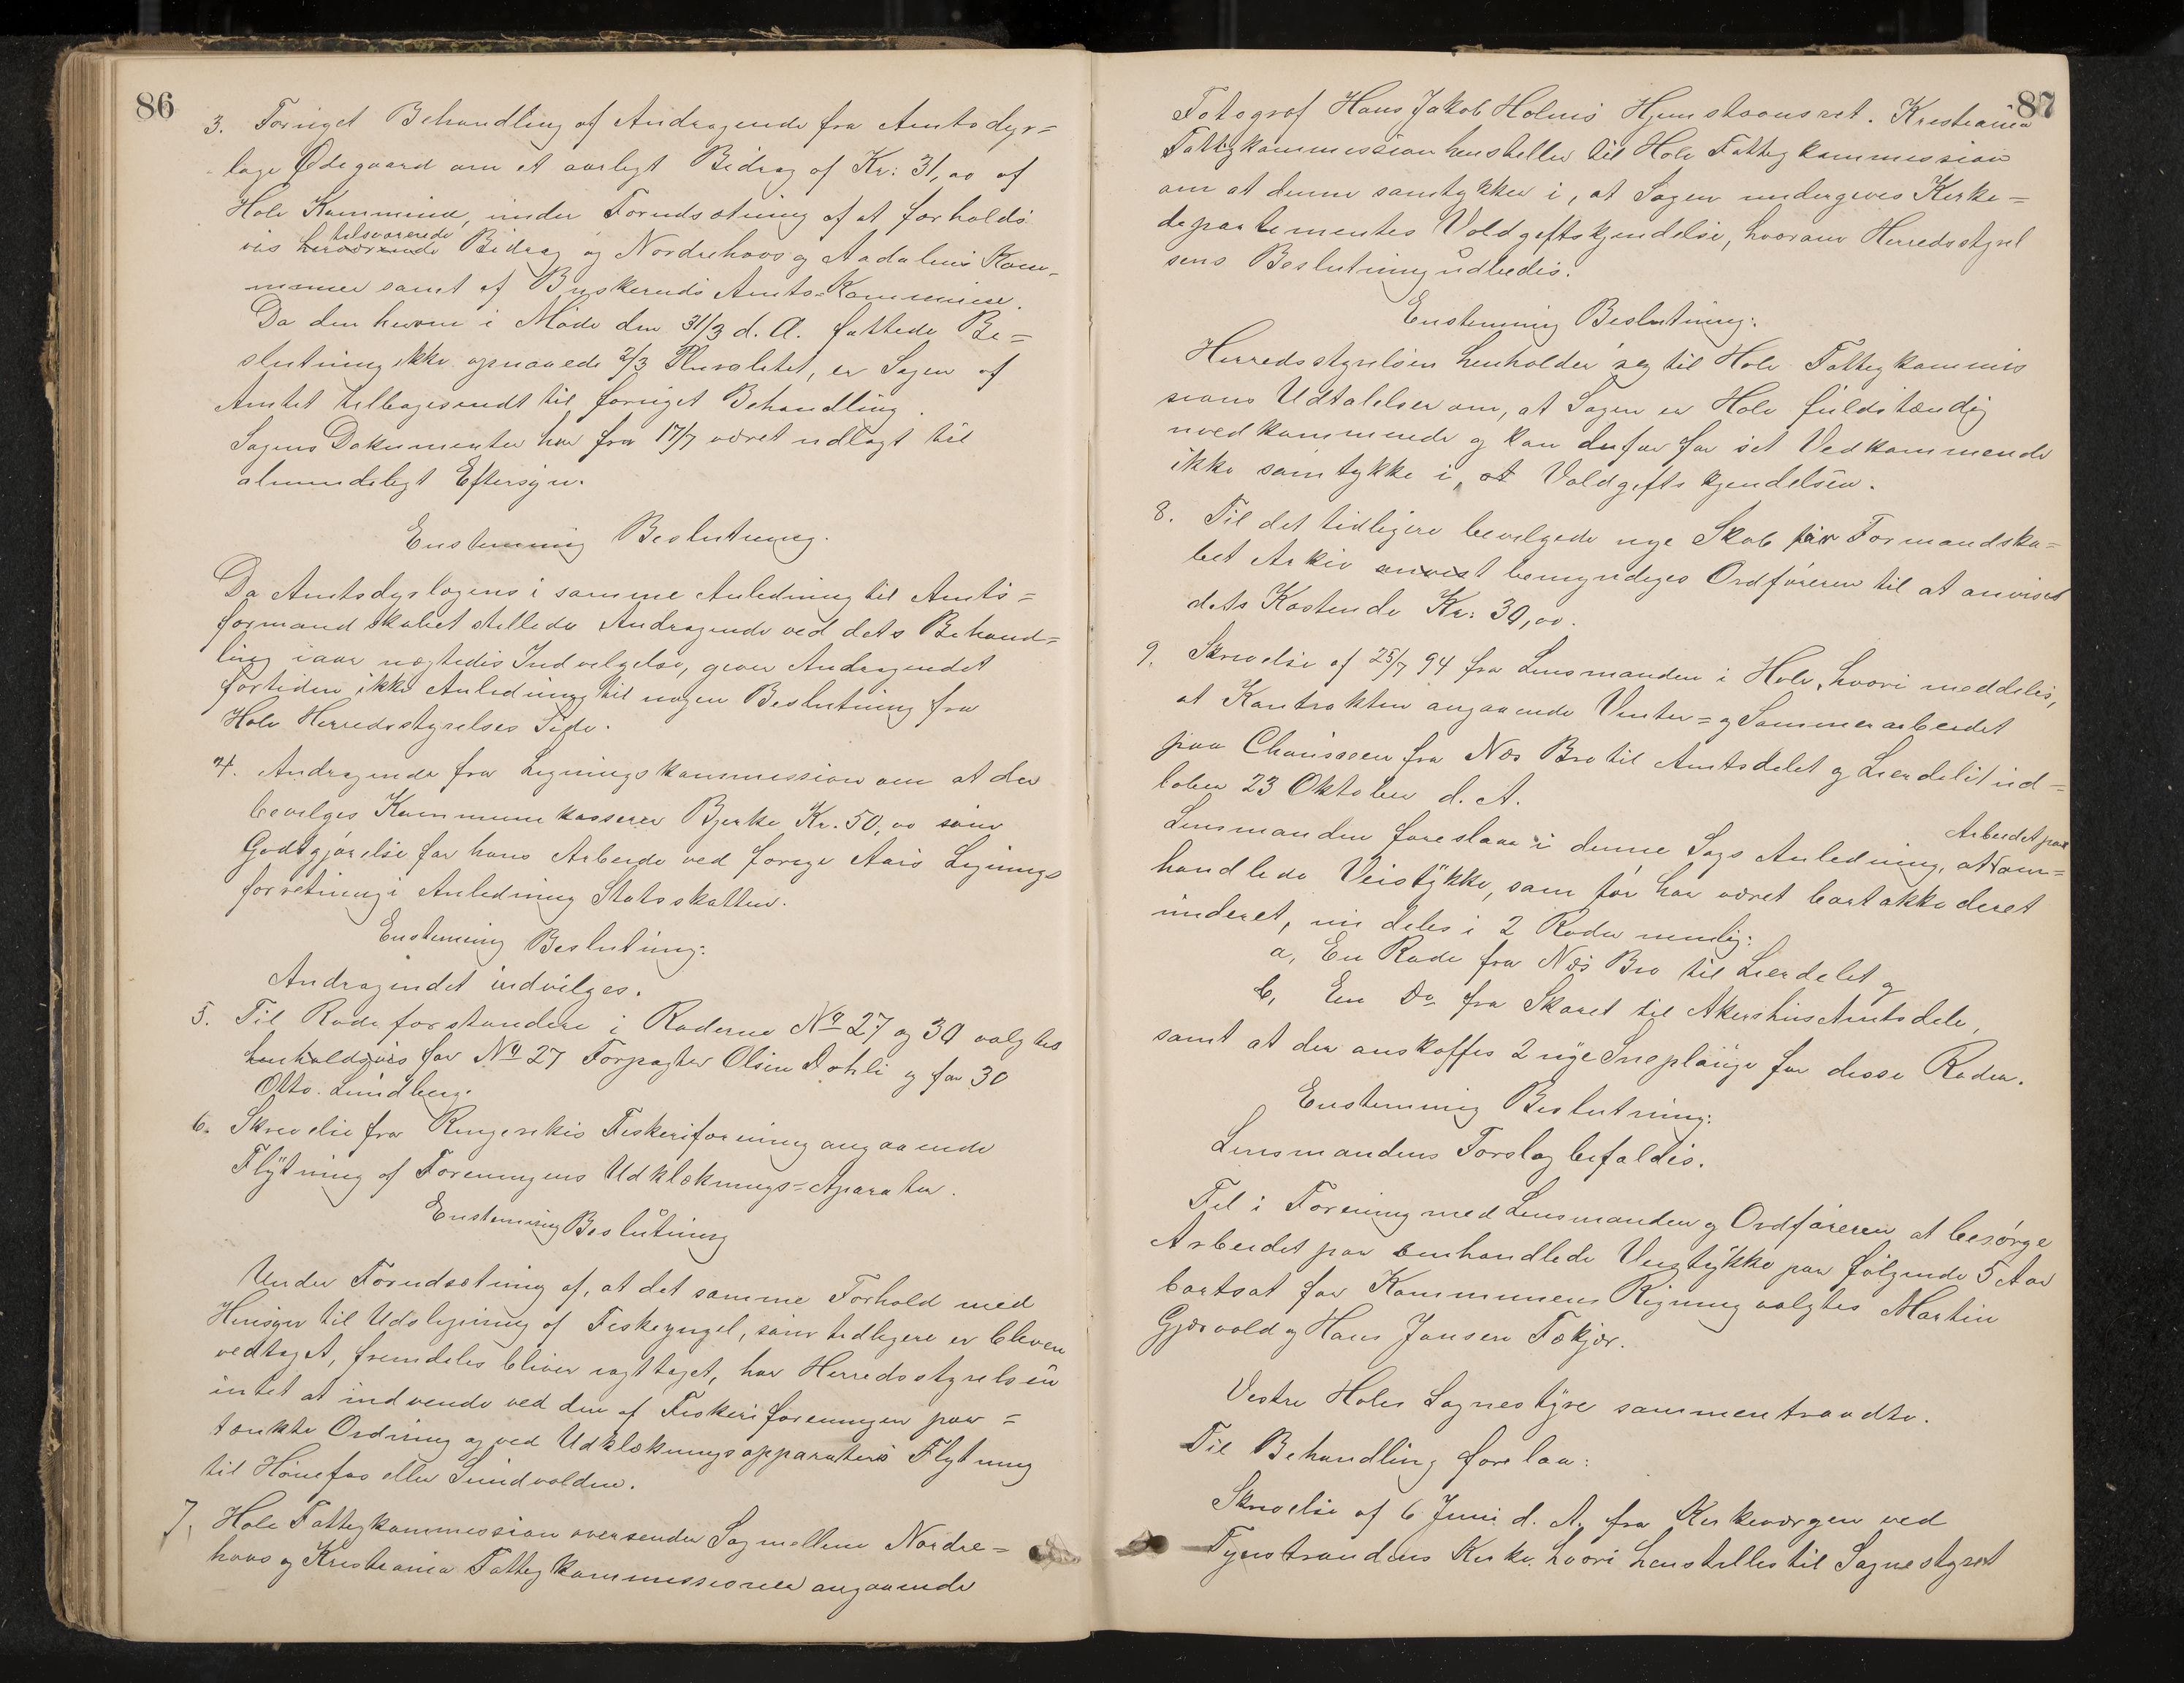 86
3. Fornyet Behandling af Andragende fra Amtsdyr=
læge Ødegaard om et aarligt Bidrag af Kr: 31,00 af
Hole Kommune, under Forudsætning af at forholds
vis tilsvarende Bidrag og Norderhovs og Aadalens Kom-
muner samt af Buskeruds Amts-Kommune.
Da den herom i Møde den 31/3 d. A. fattede Be=
slutning ikke opnaaede 2/3 Pluralitet, er Sagen af
Amtet tilbagesendt til fornyet Behandling.
Sagens Dokumenter har fra 17/7 været udlagt til
almindeligt Eftersyn.
Enstemmig Beslutning.
Da Amtsdyrlægens i samme Anledning til Amts=
formandskabet stillede Andragende ved dets Behand=
ling iaar nægtedes Indvilgelse, giver Andragendet
fortiden ikke Anledning til nogen Beslutning fra
Hole Herredsstyrelses Side.
4. Andragende fra Ligningskommission om at der
bevilges Kommunekasserer Bjerke Kr. 50,00 som
Godtgjørelse for hans Arbeide ved forrige Aars Lignings
forretning i Anledning Statsskatten.
Enstemmig Beslutning:
Andragendet indvilges.
5. Til Rodeforstandere i Roderne No 27 og 30 valgtes
henholdsvis for No 27 Forpagter Olsen Dohli og for 30
Otto Lindberg.
6. Skrivelse fra Ringerikes Fiskeriforening angaaende
Flytning af Foreningens Udklæknings=Aparater.
Enstemmig Beslutning
Under Forudsætning af, at det samme Forhold med
Hensyn til Udslipning af Fiskeyngel, som tidligere er bleven
vedtaget, fremdeles bliver iagttaget, har Herredsstyrelsen
intet at indvende ved den af Fiskeriforeningen paa=
tænkte Ordning og ved Udklækningsapparaters Flytning
til Hønefos eller Sundvolden.
7. Hole Fattigkommission oversender Sag mellem Norder=
hovs og Kristiania Fattigkommissioner angaaende
87
Fotograf Hans Jakob Holms Hjemstavnsret. Kristiania
Fattigkommission henstiller til Hole Fattigkommission
om at denne samtykker i, at Sagen undergives Kirke=
departementes Voldgiftskjendelse, hvorom Herredsstyrel
sens Beslutning udbedes.
Enstemmig Beslutning:
Herredsstyrelsen henholder sig til Hole Fattigkommis
sions Udtalelser om, at Sagen er Hole fuldstændig
uvedkommende og kan derfor for sit Vedkommende
ikke samtykke i, at Voldgiftskjendelsen.
8. Til det tidligere bevilgede nye Skab for Formandska=
bet Arkiv anvist bemyndiges Ordføreren til at anvises
dets Kostende Kr: 30,00.
9. Skrivelse af 25/7 94 fra Lensmanden i Hole, hvori meddeles,
at Kontrakten angaaende Vinter= og Sommerarbeidet
paa Chausseen fra Næs Bro til Amtsdelet og Lierdelet ud=
løber 23 Oktober d. A.
Lensmanden foreslaar i denne Sags Anledning, at Arbeidet paa om=
handlede Veistykke, som før har været bortakkorderet
underet, nu deles i 2 Roder nemlig:
a, En Rode fra Næs Bro til Lierdelet og
b, En Do fra Skaret til Akershus Amtsdele,
samt at der anskaffes 2 nye Sneplouge for disse Roder.
Enstemmig Beslutning:
Lensmandens Forslag bifaldes.
Til i Forening med Lensmanden og Ordføreren at besørge
Arbeidet paa omhandlede Veistykke paa følgende 5 Aar
bortsat for Kommunens Regning valgtes Martin
Gjesvold og Hans Jansen Fækjør.
Vestre Holes Sognestyre sammentraadte.
Til Behandling forelaa:
Skrivelse af 6 Juni d. A. fra Kirkeværgen ved
Tyristrandens Kirke, hvori henstilles til Sognestyret